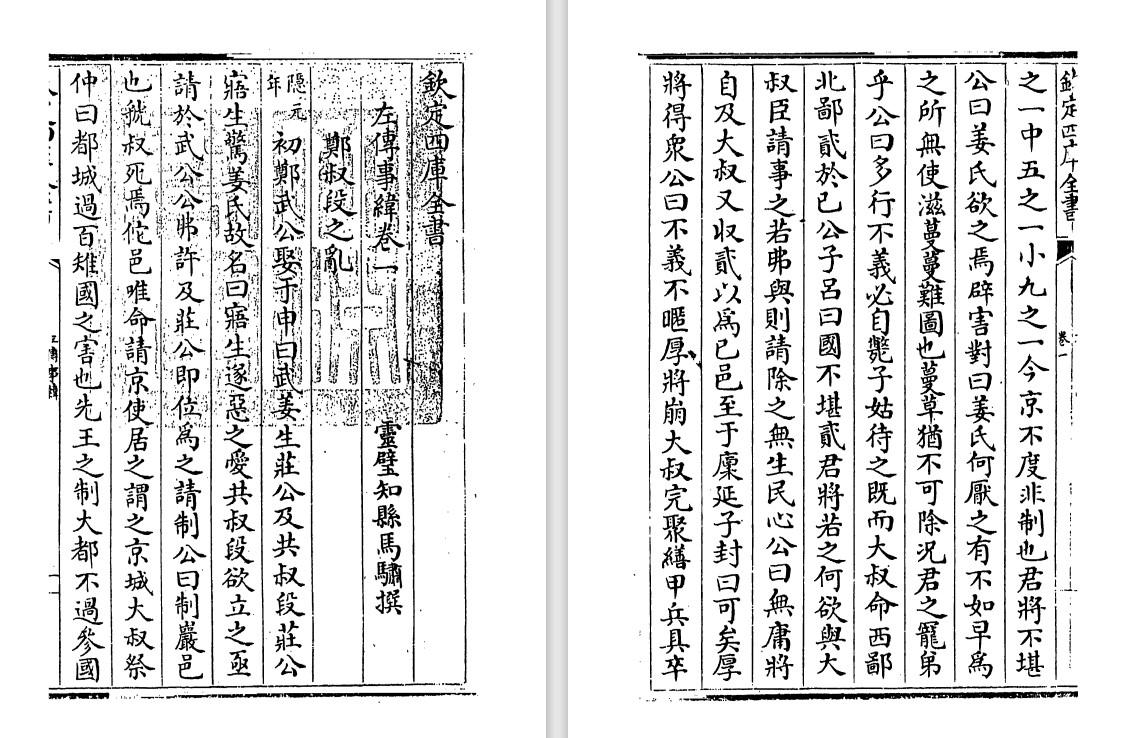 欽定四庫全書
左傳事緯卷一
靈璧知縣馬驌撰
鄭叔段之亂
隱元年
初鄭武公娶于申曰武姜生莊公及共叔段莊公
寤生驚姜氏故名曰寤生遂惡之愛共叔段欲立之亟
請於武公公弗許及莊公即位為之請制公曰制巖邑
也虢叔死焉佗邑唯命請京使居之謂之京城大叔祭
仲曰都城過百雉國之害也先王之制大都不過參國
左傳事緯
欽定四庫全書
卷一
之一中五之一小九之一今京不度非制也君將不堪
公曰姜氏欲之焉辟害對曰姜氏何厭之有不如早為
之所無使滋蔓蔓難圖也蔓草猶不可除況君之寵弟
乎公曰多行不義必自斃子姑待之既而大叔命西鄙
北鄙貳於已公子呂曰國不堪貳君將若之何欲與大
叔臣請事之若弗與則請除之無生民心公曰無庸將
自及大叔又收貳以為已邑至于廩延子封曰可矣厚
將得衆公曰不義不暱厚將崩大叔完聚繕甲兵具卒